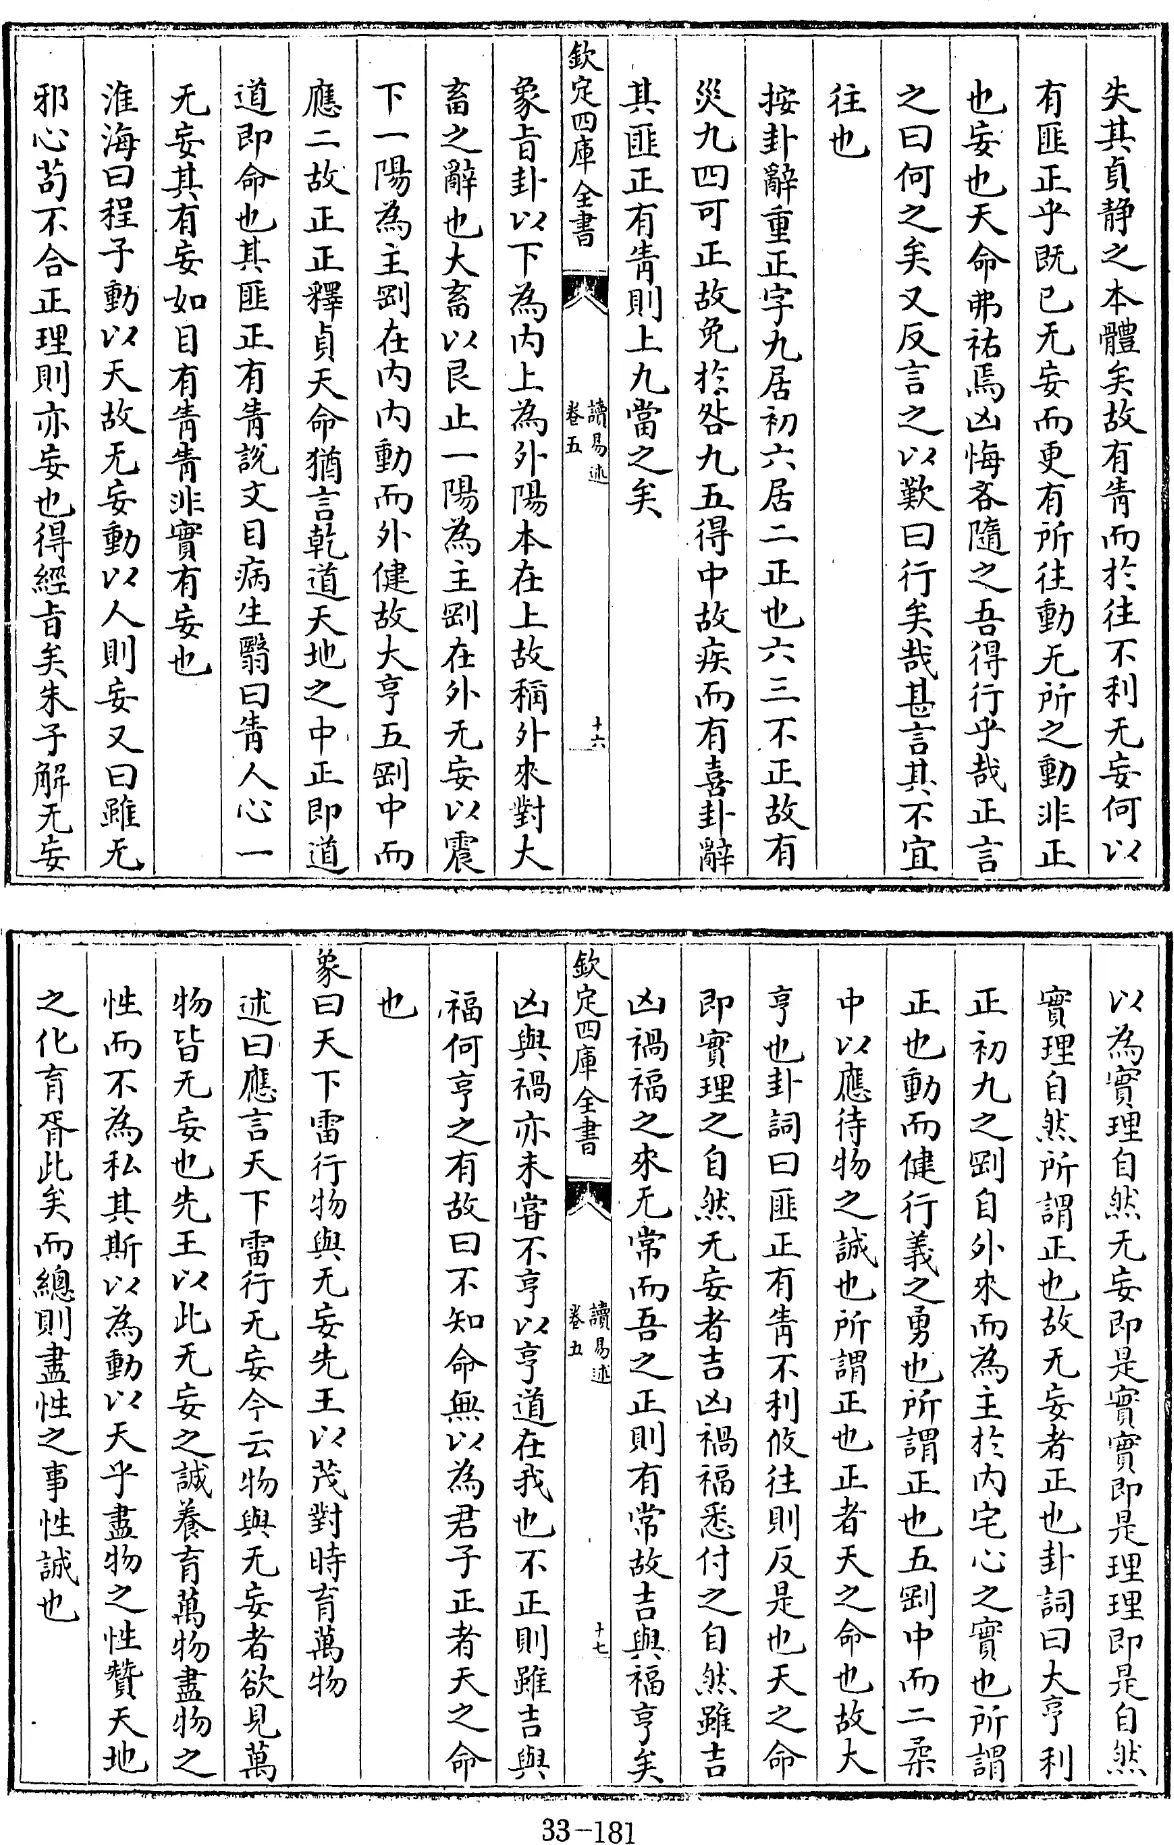 失其貞静之本體矣故有眚而於往不利无妄何以
有匪正乎既已无妄而更有所往動无所之動非正
也妄也天命弗祐焉凶悔吝隨之吾得行乎哉正言
之曰何之矣又反言之以歎曰行矣哉甚言其不宜
往也
按卦辭重正字九居初六居二正也六三不正故有
災九四可正故免於咎九五得中故疾而有喜卦辭
其匪正有眚則上九當之矣
欽定四庫全書
讀易述
卷五
十六
象旨卦以下為内上為外陽本在上故稱外來對大
畜之辭也大畜以艮止一陽為主剛在外无妄以震
下一陽為主剛在内内動而外健故大亨五剛中而
應二故正正釋貞天命猶言乾道天地之中正即道
道即命也其匪正有眚説文目病生翳曰眚人心一
无妄其有妄如目有眚眚非實有妄也
淮海曰程子動以天故无妄動以人則妄又曰雖无
邪心茍不合正理則亦妄也得經旨矣朱子解无妄
以為實理自然无妄即是實實即是理理即是自然
實理自然所謂正也故无妄者正也卦詞曰大亨利
正初九之剛自外來而為主於内宅心之實也所謂
正也動而健行義之勇也所謂正也五剛中而二柔
中以應待物之誠也所謂正也正者天之命也故大
亨也卦詞曰匪正有眚不利攸往則反是也天之命
即實理之自然无妄者吉凶禍福悉付之自然雖吉
凶禍福之來无常而吾之正則有常故吉與福亨矣
欽定四庫全書
讀易述
卷五
十七
凶與禍亦未嘗不亨以亨道在我也不正則雖吉與
福何亨之有故曰不知命無以為君子正者天之命
也
象曰天下雷行物與无妄先王以茂對時育萬物
述曰應言天下雷行无妄今云物與无妄者欲見萬
物皆无妄也先王以此无妄之誠養育萬物盡物之
性而不為私其斯以為動以天乎盡物之性贊天地
之化育胥此矣而總則盡性之事性誠也
33-181